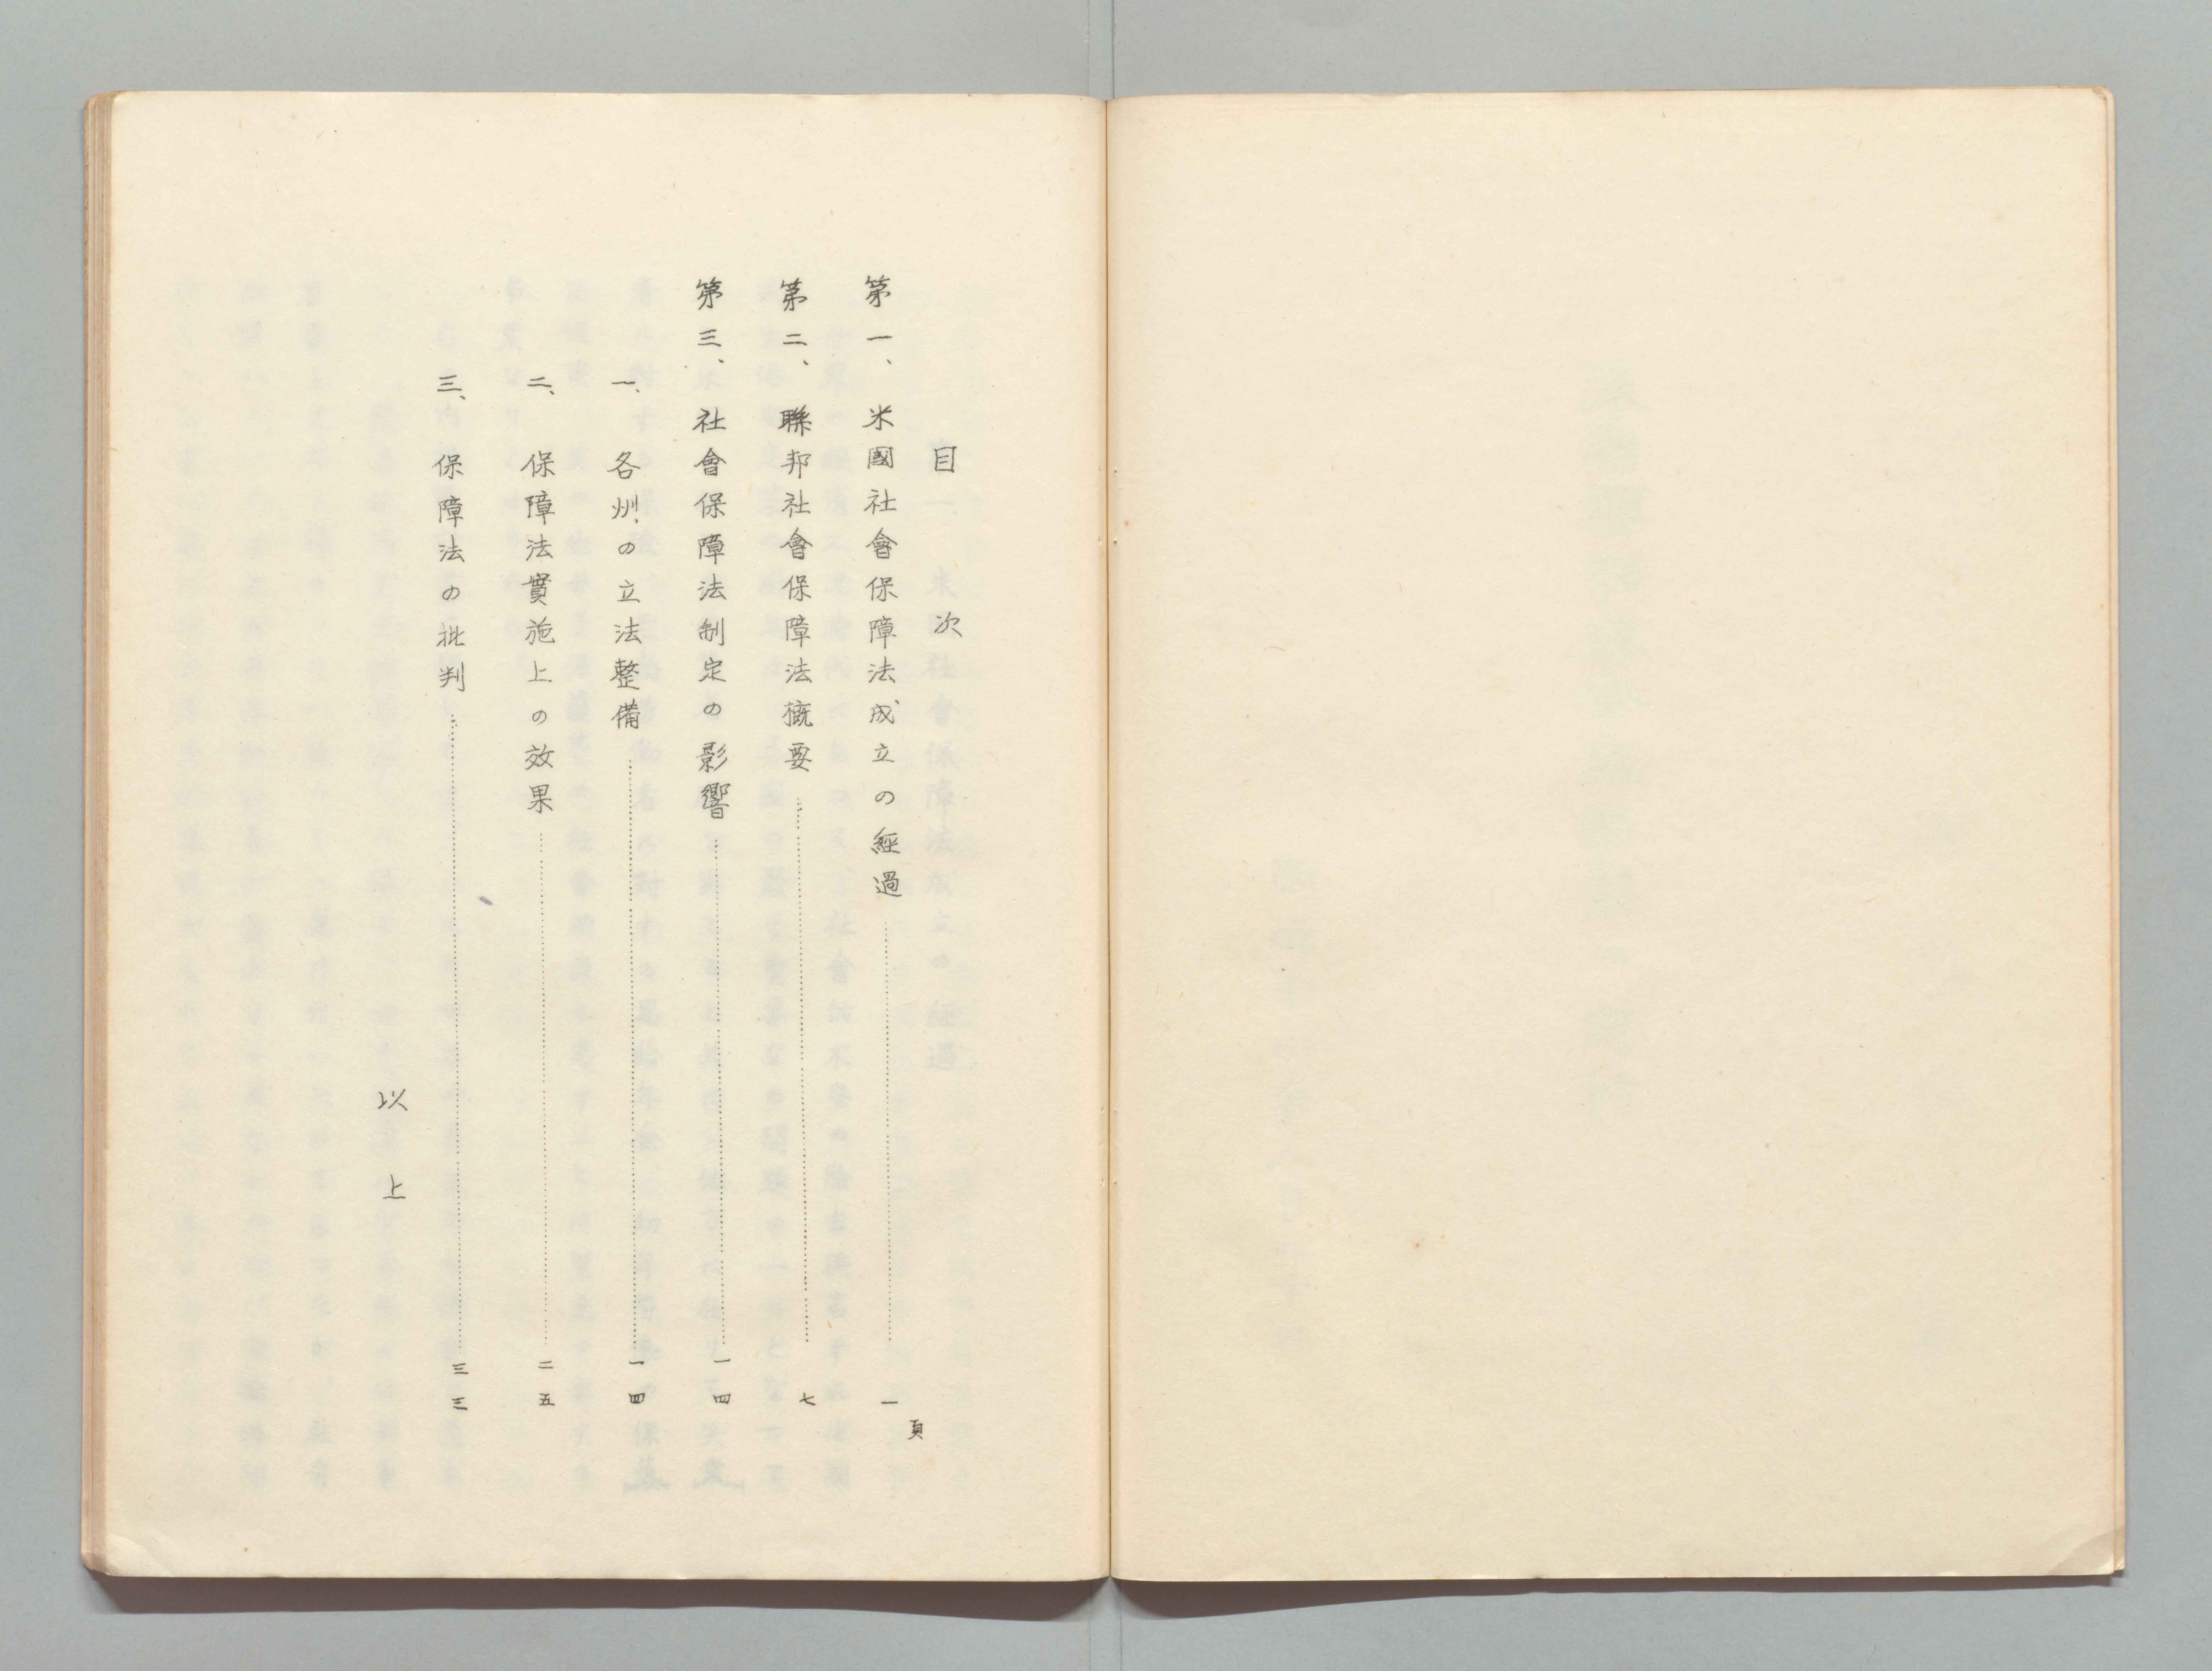 目次
第一、米國社會保障法成立の經過……一頁
第二、聯邦社會保障法概要……七
第三、社會保障法制定の影響……一四
一、各州の立法整備……一四
二、保障法實施上の效果……二五
三、保障法の批判……三三
以上